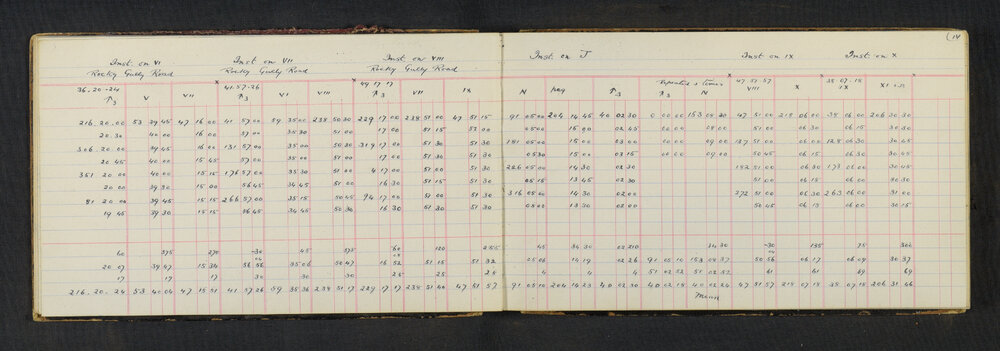 (14
Inst. on VI Inst. on VII Inst. on VIII Inst. on J Inst on IX Inst. on X
Rocky Gully Road Rocky Gully Road Rocky Gully Road
36.20-24 41.57-26 49.17.17 47 51 57 38-07-18
V VII VI VIII VII IX N peg N VIII X IX
216.20.00 53 39 45 47 16 00 41 57 00 59 35 00 238 50 30 229 17 00 238 51 00 47 51 15 91 05 00 204 14 45 40 02 30 0 00 00 153 09 30 47 51 00 218 06 00 38 06 00 206 30 30
20.30 40 00 16 00 57 00 35 30 51 00 17 00 51 15 05 00 15 00 02 45 00 00 51 00 06 30 06 15 30 30
306 20.00 39 45 16 00 131 57 00 35 00 50 30 319 17 00 51 30 51 30 181 05 00 15 00 03 00 00 00 09 00 137 51 00 06 00 128 06 30 30 45
20 45 40 00 15 45 57 00 35 00 51 00 17 00 51 30 51 30 05 30 15 00 03 15 00 00 09 00 50 45 06 15 06 30 30 45
351 20.00 40 00 15 15 176 57 00 35 15 51 00 4 17 00 51 30 226 05 00 14 30 02 30 182 51 00 06 30 173 06 00 30 45
20.00 39 30 15 00 56 45 34 45 51 00 16 30 51 15 51 30 05 15 13 45 02 30 51 00 06 15 06 30 30 30
81 20.00 39 45 15 15 266 57 00 35 15 50 45 94 17 00 51 00 51 30 316 05 00 14 30 02 00 272 51 00 06 30 263 06 00 31 00
19 45 39 30 15 15 56 45 34 45 50 30 16 30 51 30 51 30 05 00 13 30 02 00 50 45 06 15 06 00 30 15
60 375 270 -30 45 375 60 120 255 45 34 30 02 210 -30 135 75 300
20 07 39 47 15 34 56 56 35 06 50 47 16 52 51 15 51 32 05 06 14 19 02 26 91 05 10 153 50 56 06 17 06 09 30 37
17 17 17 30 30 30 25 25 25 4 4 4 51 02 52 61 61 69 69
216.20.24 53 40 04 47 15 51 41 57 26 59 35 36 238 51 17 229 17 17 238 51 40 47 51 57 91 05 10 204 14 23 40 02 30 40 02 18 40 02 24 47 51 57 218 07 18 38 07 18 206 31 46
Mean